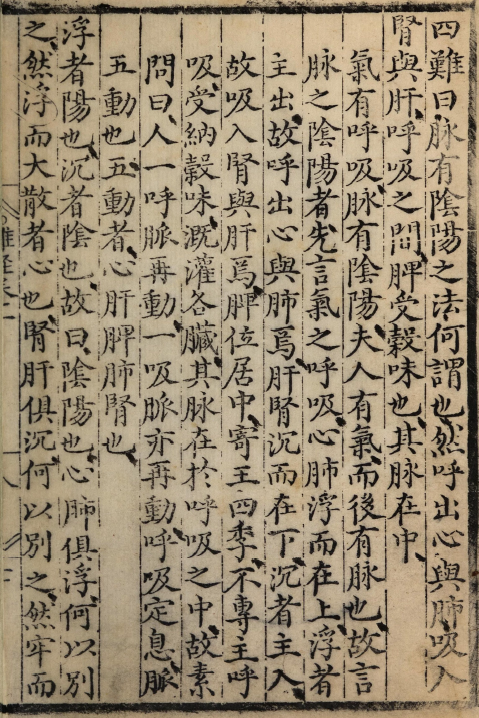 四難曰脉有陰陽之法何謂也然呼出心與肺吸入
腎與肝呼吸之間脾受穀味也其脉在中
氣有呼吸脉有陰陽夫人有氣而後有脉也故言
脉之陰陽者先言氣之呼吸心肺浮而在上浮者
主出故呼出心與肺焉肝腎沉而在下沉者主入
故吸入腎與肝焉脾位居中寄王四季不專王呼
吸受納穀味溉灌各臟其脉在於呼吸之中故素
問曰人一呼脈再動一吸脈亦再動呼吸定息脈
五動也五動者心肝脾肺腎也
浮者陽也沉者陰也故曰陰陽也心肺俱浮何以別
之然浮而大散者心也腎肝俱沉何以別之然牢而